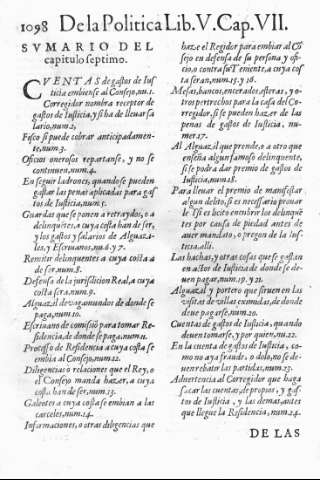 1098 De la Politica Lib. V. Cap. VII.
SVMARIO DEL
capitulo septimo.
CVENTAS de gastos de Ius
ticia embiense al Consejo, nu.1.
Corregidor nombra receptor de
gastos de Iusticia, y si ha de lleuar sa
lario, num.2,
Fisco si puede cobrar anticipadamen-
te, num.3.
Oficios onerosos repartanse, y no se
continuen, num.4.
En seguir ladrones, quando se pueden
gastar las penas aplicadas para gas
tos de Iusticia, num.5.
Guardas que se ponen a retraydos, o a
delinquentes, a cuya costa han de ser,
y los gastos y salarios de Alguazi-
les, y Escriuanos, nu.6.y 7.
Remitir delinquentes a cuya costa a
de ser num.8.
Defensa de la jurisdicion Real, a cuya
costa sera, num.9.
Alguazil de vagamundos de donde se
paga, num 10.
Escriuano de comisiõ para tomar Re-
sidencia, de donde se paga, num.11.
Processo de Residencia a cuya costa se
embia al Consejo, num.12.
Diligencias o relaciones que el Rey, o
el Consejo manda hazer, a cuya
costa han de ser, num.13.
Galeotes a cuya costa se embian a las
carceles, num.14.
Informaciones, o otras diligencias que
haze el Regidor para embiar al Cõ
sejo en defensa de su persona y ofi-
cio, o contra su Teniente, a cuya cos
ta seran, num.15.y 16.
Mesas, bancos, encerados, esteras, y o-
tros pertrechos para la casa del Co-
rregidor, si se pueden hazer de las
penas de gastos de Iusticia, nu-
mer.17.
Al Alguazil que prende, o a otro que
enseña algun famoso delinquente,
si se podra dar premio de gastos de
Iusticia, num.18.
Para lleuar el premio de manifestar
algun delito, si es necessario prouar
le Y si es licito encubrir los delinquẽ
tes por causa de piedad antes de
auer mandato, o pregon de la Ius-
ticia, alli.
Las hachas, y otras cosas que se gastan
en actos de Iusticia de donde se de-
uen pagar, num.19.y 21.
Alguazil y portero que siruen en las
visitas de villas eximidas, de donde
deue pagarse, num.20.
Cuentas de gastos de Iusticia, quando
deuen tomarse, y por quien, nu.22.
En la cuenta de gastos de Iusticia, co-
mo no aya fraude, o dolo, no se de-
uen rebatir las partidas, num.23.
Aduertencia al Corregidor que haga
sacar las cuentas, de propios, y gas-
tos de Iusticia, y las demas, antes
que llegue la Residencia, num.24.
DE LAS